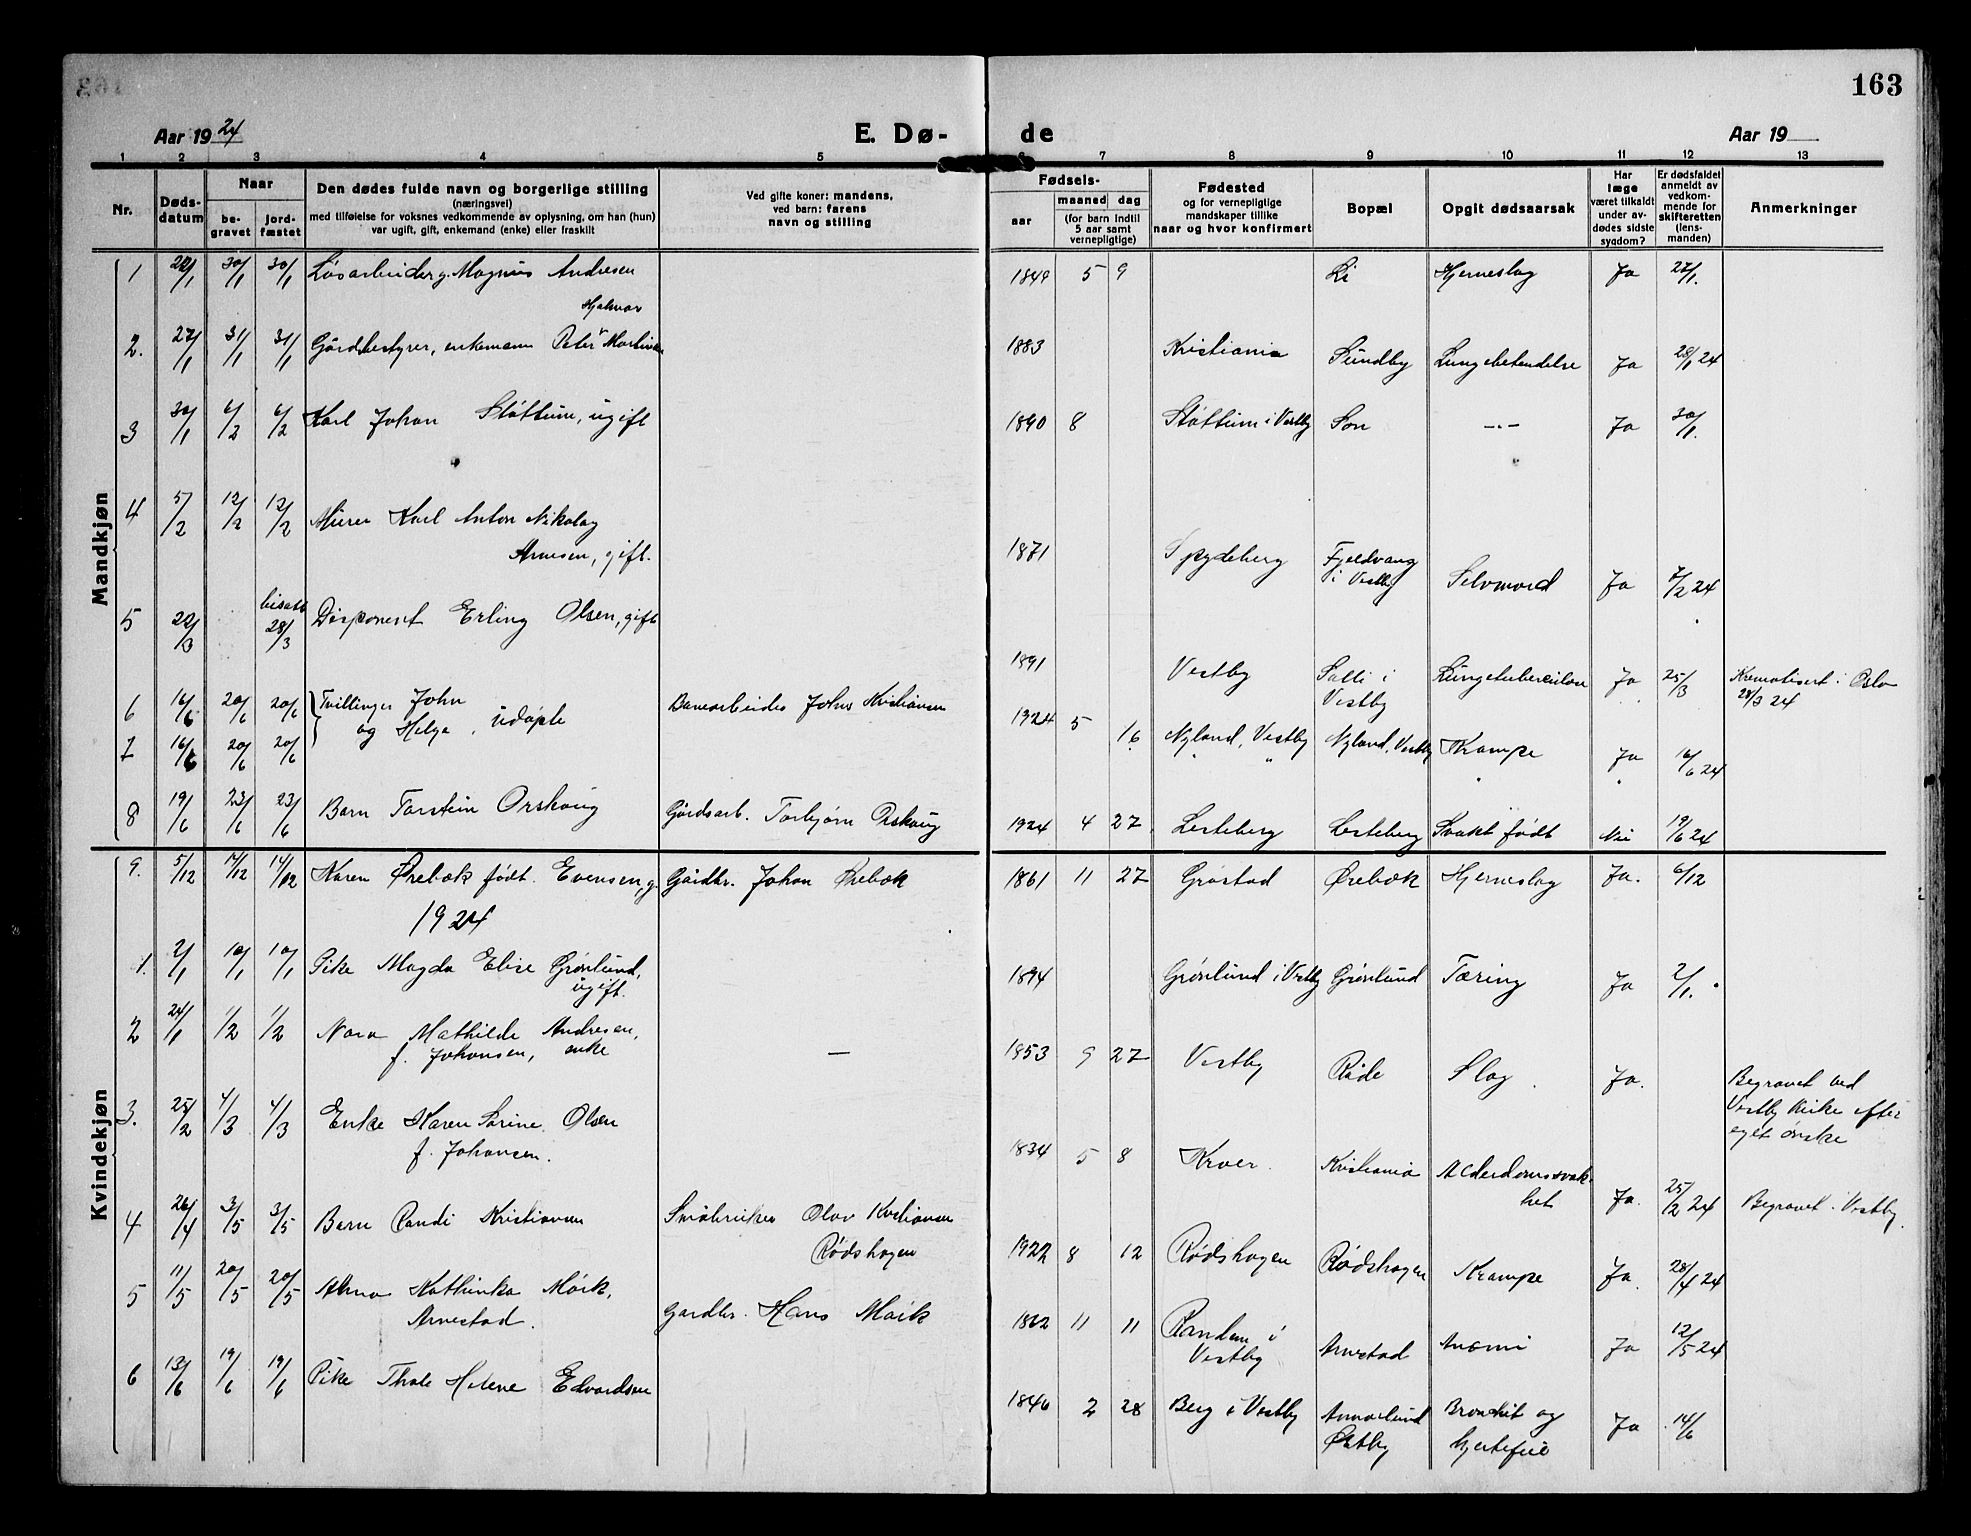 163
Aar 1924
E. Dø-
de
Aar 19
1 2 3 4 5 6 7 8 9 10 11 12 13
Nr.
Døds-
datum
Naar
be-
gravet
jord-
fæstet
Den dødes fulde navn og borgerlige stilling
(næringsvei)
med tilføielse for voksnes vedkommende av oplysning, om han (hun)
var ugift, gift, enkemand (enke) eller fraskilt
Ved gifte koner: mandens,
ved barn: farens
navn og stilling
Fødsels-
aar
maaned dag
(for barn indtil
5 aar samt
vernepligtige)
Fødested
og for vernepligtige
mandskaper tillike
naar og hvor konfirmert
Bopæl
Opgit dødsaarsak
Har
læge
været tilkaldt
under av-
dødes sidste
sygdom?
Er dødsfaldet
anmeldt av
vedkom-
mende for
skifteretten
(lens-
manden)
Anmerkninger
Mandkjøn
1 22/1 30/1 30/1 Løsarbeider g. Magnus Andresen 1849 5 9 Li Hjerneslag Ja 27/1.
Hjalmar
2. 27/1 31/1 31/1 Gårdbestyrer, enkemann Peter Martinsen 1883 Kristiania Sundby Lungebetendelse Ja 28/1 24
3 30/1 6/2 6/2 Karl Johan Støttum, ugift 1890 8 Støttum i Vestby Son -"- Ja 30/1.
4 5/2 12/2 12/2 Murer Karl Anton Nikolay
Arnesen, gift. 1871 Spydeberg Fjeldvang
i Vestby Selvmord Ja 7/2 24
5 22/3 bisatt
28/3 Disponent Erling Olsen, gift 1891 Vestby Solli i
Vestby Lungetuberculose Ja 25/3 Krematisert i Oslo
28/3 24
6 16/6 20/6 20/6 Tvillinger John
og Helge, udøpte Banearbeider Johns Kristiansen 1924 5 16 Nyland, Vestby Nyland, Vestby Krampe Ja 16/6 24
7 16/6 20/6 20/6 " "
8 19/6 23/6 23/6 Barn Torstein Orskaug Gårdsarb. Torbjørn Orskaug 1924 4 27 Lerteberg Lerteberg Svakt født Nei 19/6 24
Kvindekjøn
9. 5/12 14/12 14/12 Karen Ørebæk født Evensen, g. Gårdbr. Johan Ørebæk 1861 11 27 Grøstad Ørebæk Hjerneslag Ja. 6/12
1924
1. 2/1 10/1 10/1 Pike Magda Elise Grønlund,
ugift. 1894 Grønlund i Vestby Grønlund Tæring Ja 2/1.
2 24/1 1/2 1/2 Nora Mathilde Andresen,
f. Johansen, enke — 1853 9 27 Vestby Råde Slag. Ja. Begravet ved
Vestby kirke efter
eget ønske
3. 25/2 4/3 4/3 Enke Karen Sorine Olsen
f. Johansen. 1834 5 8 Kroer. Kristiania Alderdomssvak-
het Ja. 25/2 24 Begravet i Vestby.
4 26/4 3/5 3/5 Barn Randi Kristiansen Småbruker Olav Kristiansen
Rødshagen 1922 8 12 Rødshagen Rødshagen Krampe Ja. 28/4 24
5 11/5 20/5 20/5 Anna Kathinka Mørk,
Arnestad. Gardbr. Hans Mørk 1862 11 11 Randem i
Vestby Arnestad Anæmi Ja 12/5 24
6 13/6 19/6 19/6 Pike Thale Helene Edvardsen 1846 2 28 Berg i Vestby
Østby Bronchit og
hjertefeil Ja 14/6